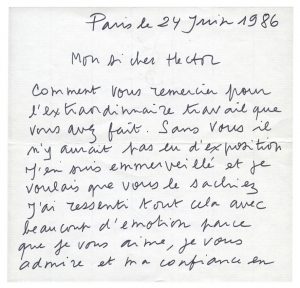 Paris le 24 Juin 1986
Mon si cher Hector
Comment vous remercier pour
l'extraordinaire travail que
vous avez fait. Sans vous il
n'y aurait pas eu d'exposition
J'en suis emmerveillé et je
voulais que vous le sachiez
J'ai ressenti tout cela avec
beaucoup d'emotion parce
que je vous aime, je vous
admire et ma confiance en